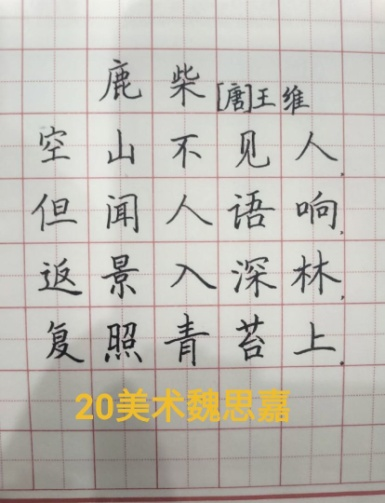 鹿柴[唐]王维
空山不见人.
但闻人语响.
返景入深林.
复照青苔上.
20美术魏思嘉